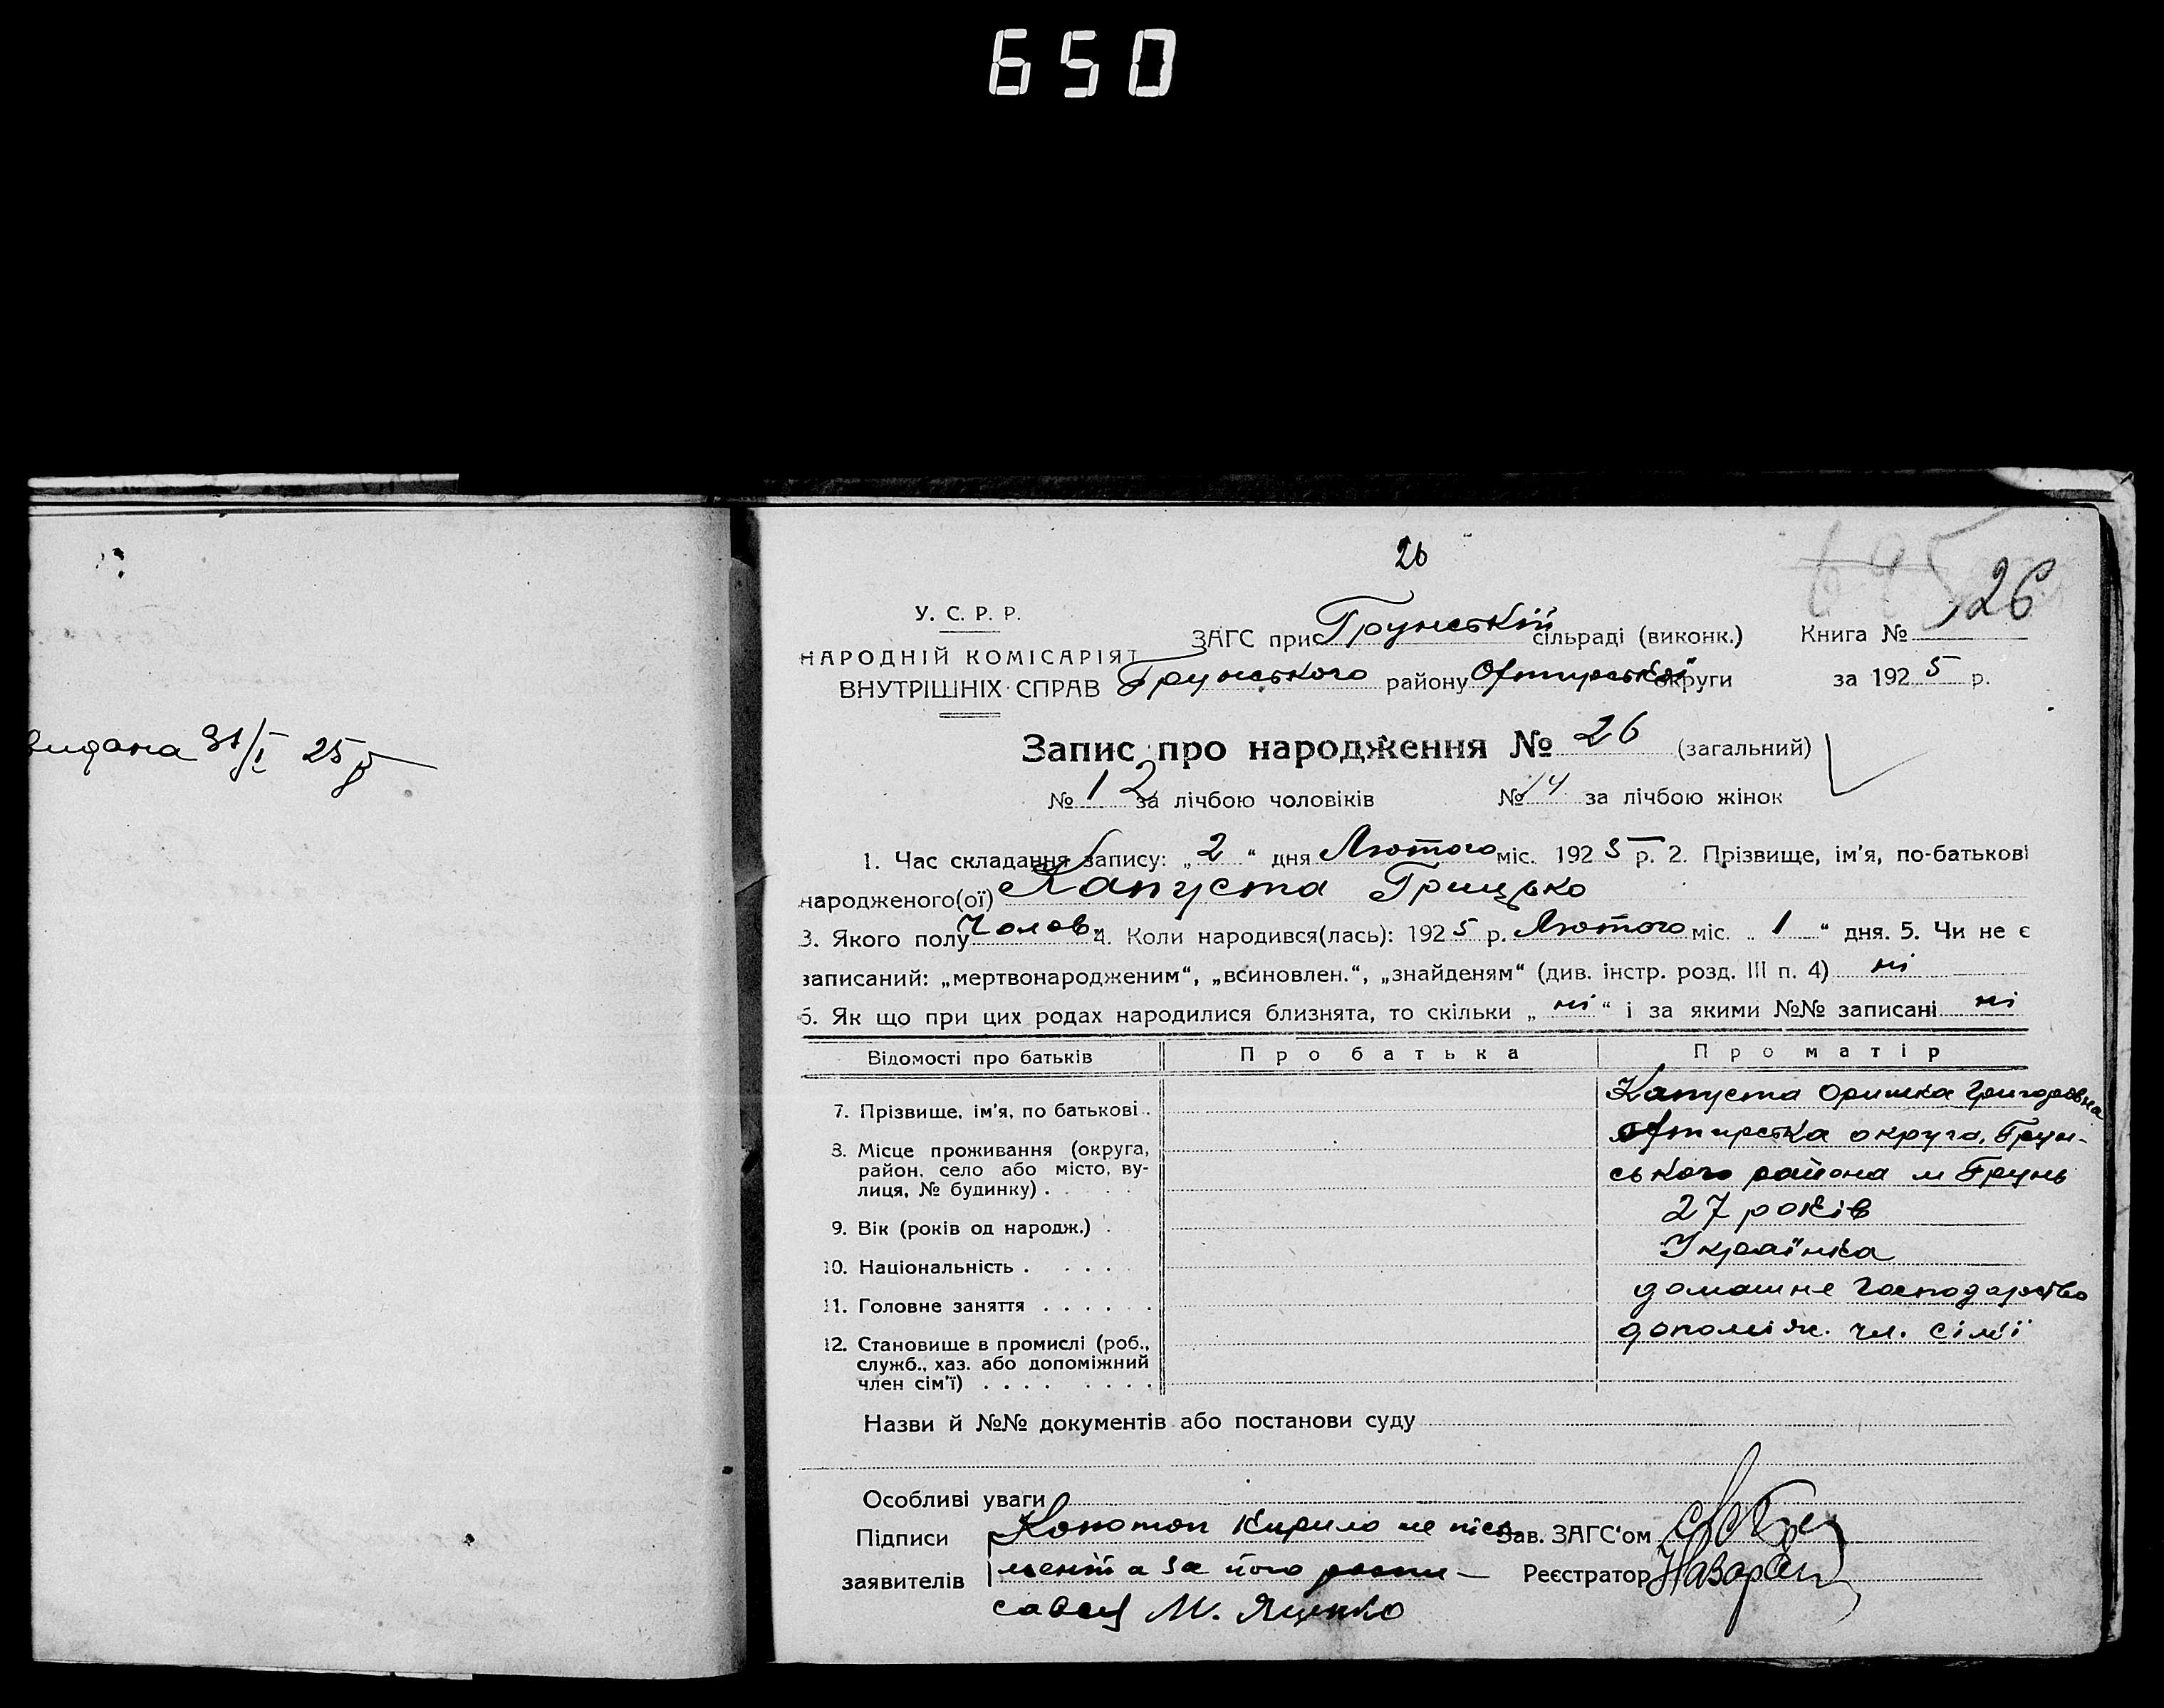 650
видана 31/I 25 р
26
695
26
У. С. Р. Р.
НАРОДНІЙ КОМІСАРІЯТ
ВНУТРІШНІХ СПРАВ
ЗАГС при Грунській сільраді (виконк.) Книга №
Грунського району Охтирської округи за 1925 р.
Запис про народження № 26 (загальний)
№ 12 за лічбою чоловіків № 14 за лічбою жінок
1. Час складання запису: „2“ дня Лютого міс. 1925 р. 2. Прізвище, ім'я, по-батькові
народженого(ої) Капуста Грицько
3. Якого полу Чолов. 4. Коли народився(лась): 1925 р. Лютого міс. „1“ дня. 5. Чи не є
записаний: „мертвонародженим“, „всиновлен.“, „знайденям“ (див. інстр. розд. III п. 4) ні
6. Як що при цих родах народилися близнята, то скільки „ні“ і за якими №№ записані ні
Відомості про батьків Про батька Про матір
7. Прізвище, ім'я, по батькові Капуста Оришка Григоровна
8. Місце проживання (округа, Охтирська округа, Грун-
район, село або місто, ву-
лиця, № будинку) ського района м Грунь
9. Вік (років од народж.) 27 років
10. Національність Українка
11. Головне заняття домашнє господарство
12. Становище в промислі (роб., допоміж. чл. сім'ї
служб., хаз. або допоміжний
член сім'ї)
Назви й №№ документів або постанови суду
Особливі уваги
Підписи Конотоп Кирило не пись Зав. ЗАГС'ом
заявителів менний а за його роспи- Реєстратор
савсь М. Яценко